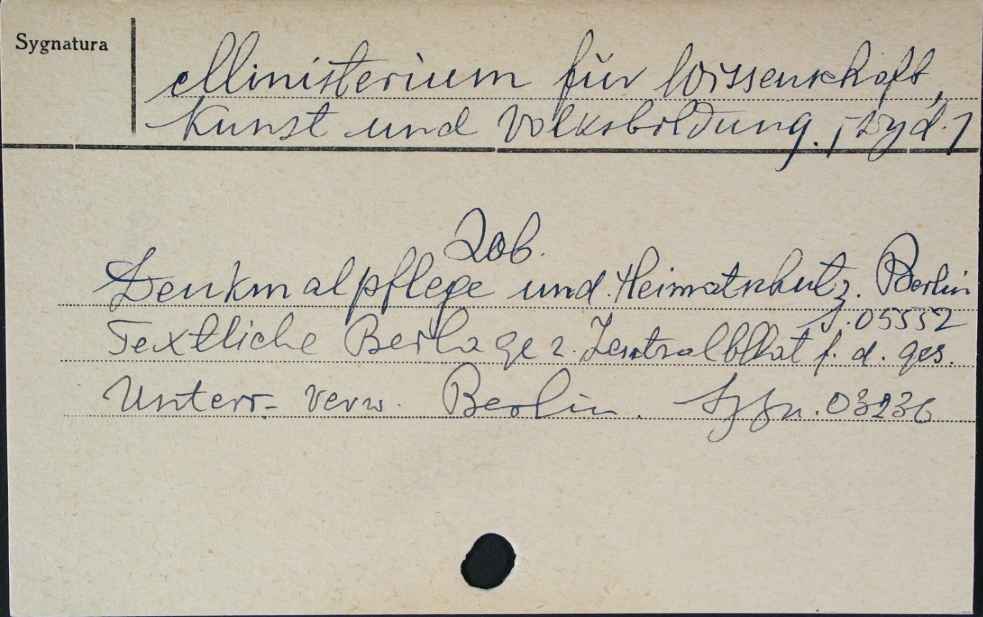 Sygnatura
Ministerium für Wissenschaft,
Kunst und Volksbildung. [wyd.]
Zob.
Denkmalpflege und Heimatschutz. Berlin
05552
Textliche Beilage z. Zentralblatt f. d. ges.
Unterr. verw. Berlin. Sygn. 03236